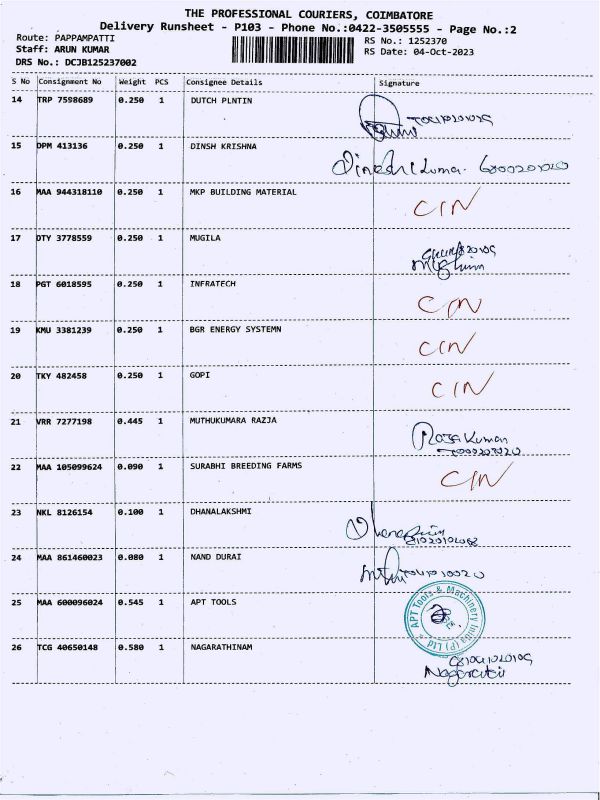 THE PROFESSIONAL COURIERS, COIMBATORE
Delivery Runsheet - P103 - Phone No.:0422-3505555 - Page No.:2
Route: PAPPAMPATTI
RS No.: 1252370
Staff: ARUN KUMAR
RS Date: 04-Oct-2023
DRS No.: DCJB125237002
S No Consignment No Weight PCS Consignee Details Signature
14 TRP 7598689 0.250 1 DUTCH PLNTIN
15 DPM 413136 0.250 1 DINSH KRISHNA
16 MAA 944318110 0.250 1 MKP BUILDING MATERIAL CIN
17 DTY 3778559 0.250 1 MUGILA
18 PGT 6018595 0.250 1 INFRATECH CIN
19 KMU 3381239 0.250 1 BGR ENERGY SYSTEMN CIN
20 TKY 482458 0.250 1 GOPI CIN
21 VRR 7277198 0.445 1 MUTHUKUMARA RAZJA
22 MAA 105099624 0.090 1 SURABHI BREEDING FARMS CIN
23 NKL 8126154 0.100 1 DHANALAKSHMI
24 MAA 861460023 0.080 1 NAND DURAI
25 MAA 600096024 0.545 1 APT TOOLS APT Tools & Machinery India (P) Ltd
26 TCG 40650148 0.580 1 NAGARATHINAM